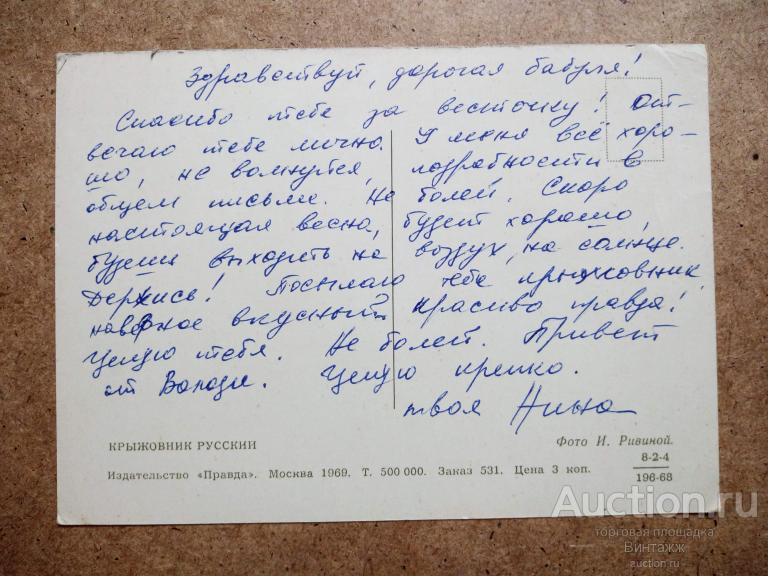 Здравствуй, дорогая бабуля!
Спасибо тебе за весточку! От-
вечаю тебе лично. У меня всё хоро-
шо, не волнуйся, подробности в
общем письме. Не болей. Скоро
настоящая весна, будет хорошо,
будешь выходить на воздух, на солнце.
Держись! Посылаю тебе крыжовник,
наверное вкусный? Красиво правда!
Целую тебя. Не болей. Привет
от Володи. Целую крепко.
твоя Нина
КРЫЖОВНИК РУССКИЙ
Фото И. Ривиной.
8-2-4
196-68
Издательство «Правда». Москва 1969. Т. 500 000. Заказ 531. Цена 3 коп.
Auction.ru
торговая площадка
Винтажж
auction.ru